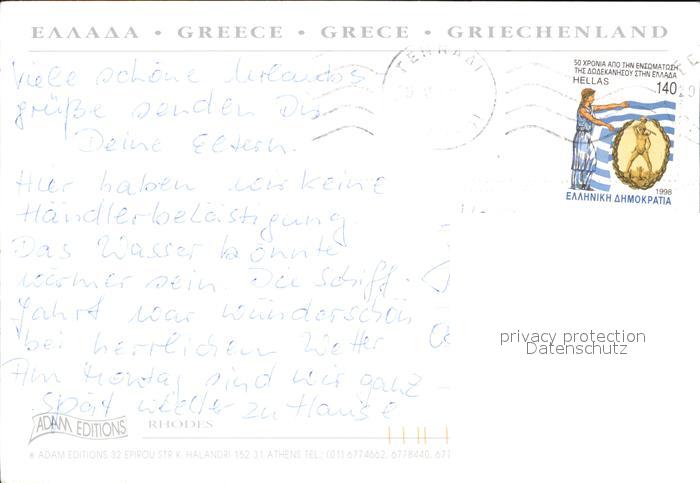 ΕΛΛΑΔΑ • GREECE • GRECE • GRIECHENLAND
Viele schöne Urlaubs
grüße senden Dir
Deine Eltern.
Hier haben wir keine
Händlerbelästigung.
Das Wasser könnte
wärmer sein. Die Schiff-
fahrt war wunderschön
bei herrlichem Wetter
Am Montag sind wir ganz
spät wieder zu Hause
ΓΕΝΝΑΔΙ
50 ΧΡΟΝΙΑ ΑΠΟ ΤΗΝ ΕΝΣΩΜΑΤΩΣΗ
ΤΗΣ ΔΩΔΕΚΑΝΗΣΟΥ ΣΤΗΝ ΕΛΛΑΔΑ
HELLAS
140
1998
ΕΛΛΗΝΙΚΗ ΔΗΜΟΚΡΑΤΙΑ
privacy protection
Datenschutz
ADAM EDITIONS
RHODES
ADAM EDITIONS 32 EPIROU STR K. HALANDRI 152 31 ATHENS TEL.: (01) 6774662, 6778440, 677